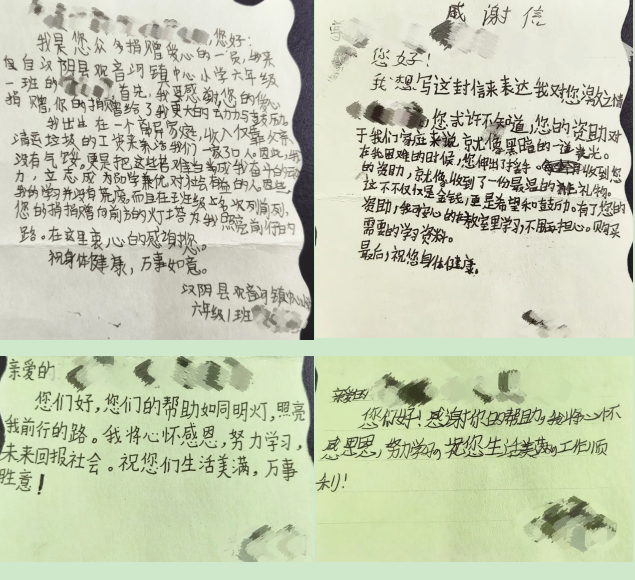 您好:
我是您众多捐赠爱心的一员,
自汉阴县观音河镇中心小学六年级
一班的 首先,我更感谢您的爱心
捐赠,你的捐赠给了我更大的动力与鼓励。
我出生在一个 家庭,收入仅靠父亲
清运垃圾的工资来养活我们一家3口人因此,我
没有气 更是把这些 当成我奋斗的动
力,立志成为品学兼优,对社会有益的人因此
我的学 没有荒废,而且在班级上名次列前列,
您的捐 向前的灯塔为我照亮前行的
路。在这里衷心的感谢您。
祝身体健康,万事如意。
汉阴县观音河镇中心小
六年级1班
感谢信
您好!
我想写这封信来表达我对您 之情
您或许不知道,您的资助对
于我们家庭来说就像黑暗的一道亮光。
在我困难的时候,您伸出 手。 收到您
的资助,就像收到了一份最温的 礼物。
这不仅仅是金钱,更是希望和鼓励。有了您的
资助,我可安心的在教室里学习不用担心。购买
需要的学习资料。
最后,祝您身体健康。
亲爱的
您们好,您们的帮助如同明灯,照亮
我前行的路。我将心怀感恩,努力学习,
未来回报社会。祝您们生活美满,万事
胜意!
亲爱的
您们好!感谢你的帮助,我将心怀
感恩,努力学习。祝您生活美满,工作顺
利!